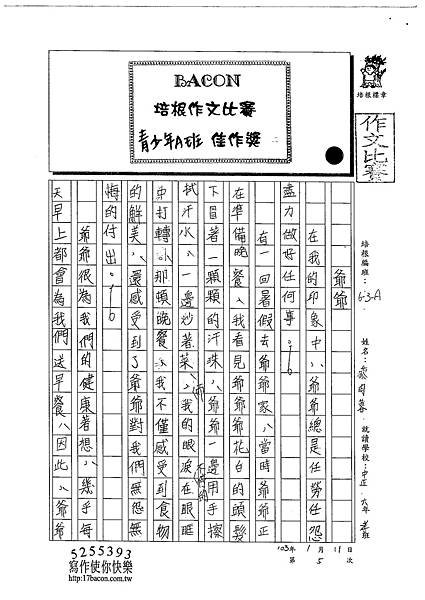 BACON
培根作文比賽
青少年A班 佳作獎
培根標章
作文比賽
培根編班：63-A
姓名：
就讀學校：中正 六年
爺爺
在我的印象中，爺爺總是任勞任怨
盡力做好任何事。
有一回暑假去爺爺家，當時爺爺正
在準備晚餐，我看見爺爺花白的頭髮
下冒著一顆顆的汗珠，爺爺一邊用手擦
拭汗水，一邊炒著菜，我的眼淚不停的在眼眶
中打轉。那頓晚餐，我不僅感受到食物
的鮮美，還感受到了爺爺對我們無怨無
悔的付出。
爺爺很為我們的健康著想，幾乎每
天早上都會為我們送早餐，因此，爺爺
103年 1月 11日
第 5 次
5255393
寫作使你快樂
http://17bacon.com.tw